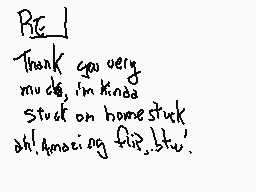 RE
Thank you very
much, im kinda
stuck on homestuck
ah! Amazing flip, btw!